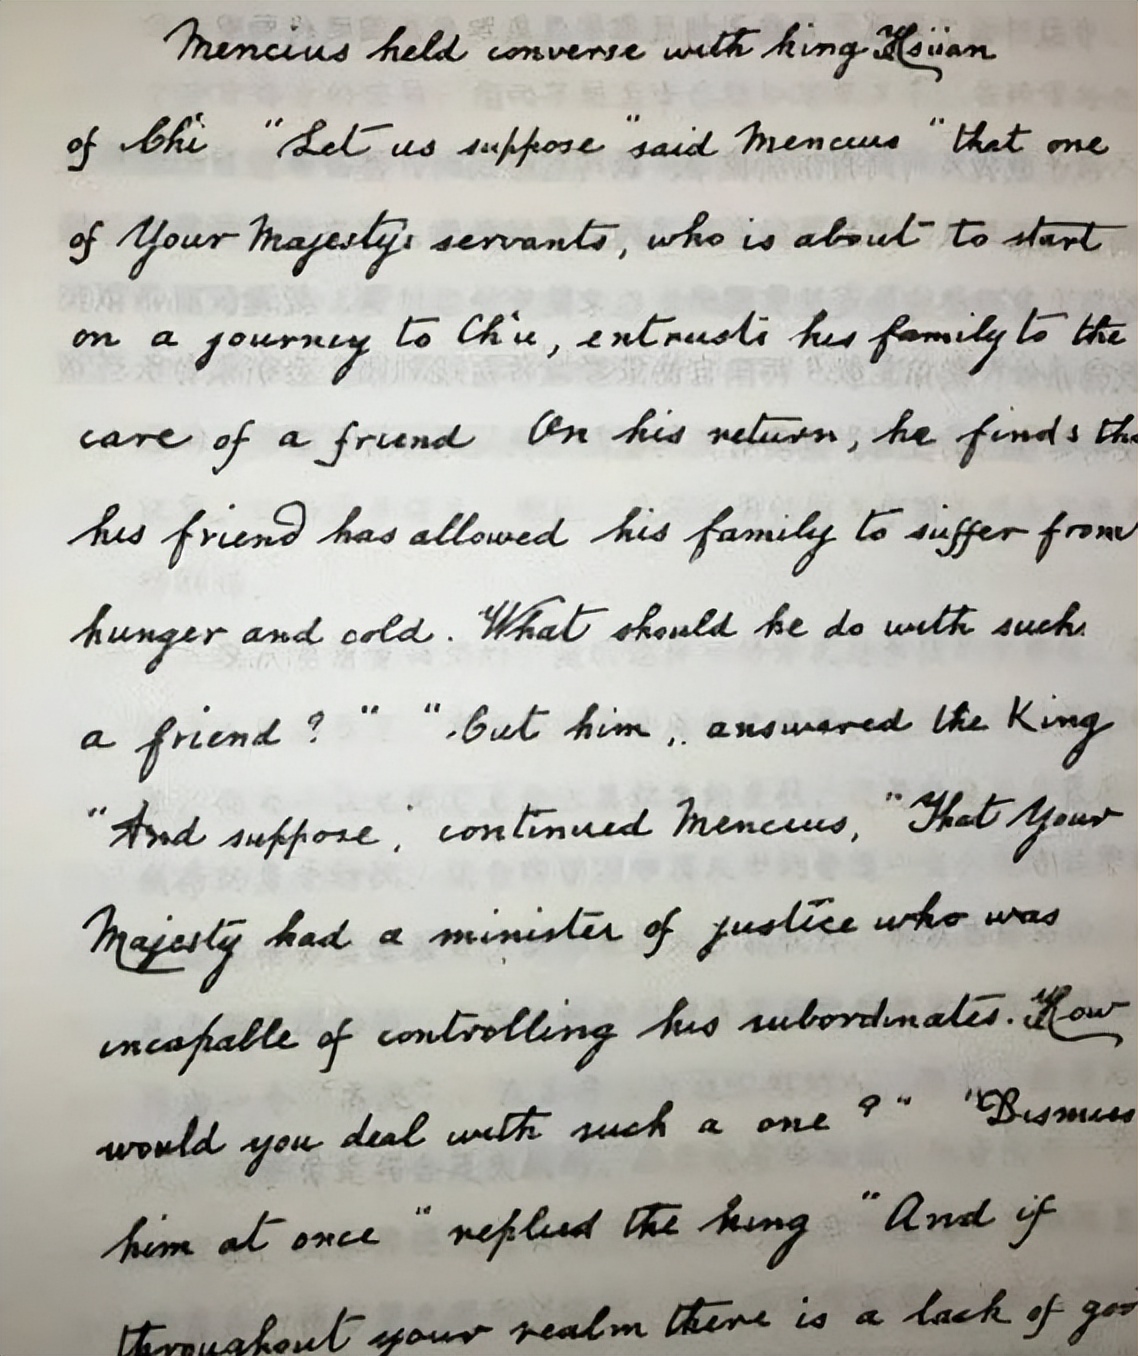 Mencius held converse with king Hsüan
of Ch'i "Let us suppose" said Mencius "that one
of Your Majesty's servants, who is about to start
on a journey to Ch'u, entrusts his family to the
care of a friend On his return, he finds tha
his friend has allowed his family to suffer from
hunger and cold. What should he do with such
a friend?" "Cut him, answered the King
"And suppose, continued Mencius, "That Your
Majesty had a minister of justice who was
incapable of controlling his subordinates. How
would you deal with such a one?" "Dismiss
him at once" replied the king "And if
throughout your realm there is a lack of goo